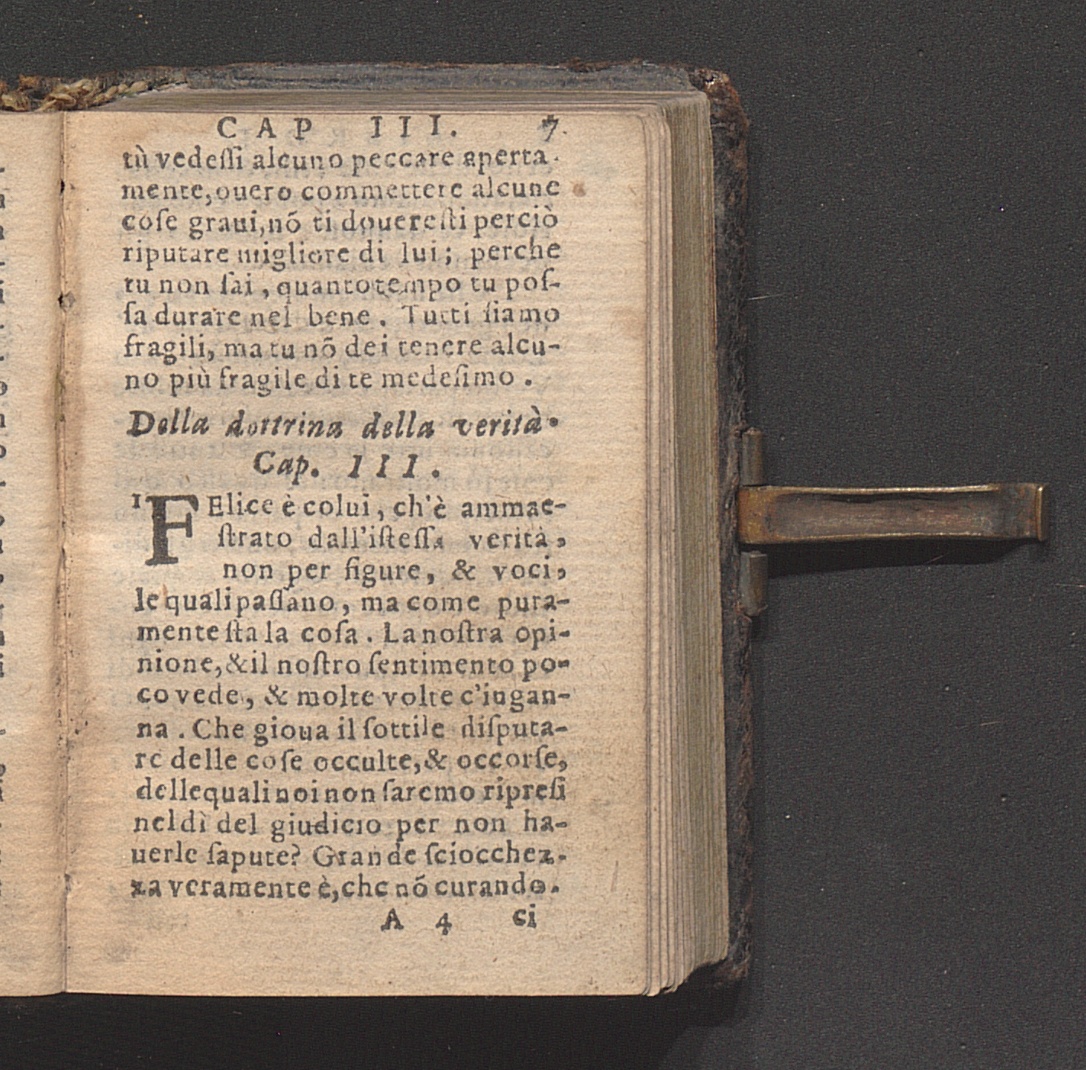 CAP III. 7.
tù vedeſſi alcuno peccare aperta-
mente, ouero commettere alcune
coſe graui, nõ ti douereſti perciò
riputare migliore di lui; perche
tu non ſai, quanto tempo tu poſ-
ſa durare nel bene. Tutti ſiamo
fragili, ma tu nõ dei tenere alcu-
no più fragile di te medeſimo.
Della dottrina della verità.
Cap. III.
1 FElice è colui, ch'è ammae-
ſtrato dall'iſteſſa verità,
non per figure, & voci,
le quali paſſano, ma come pura-
mente ſta la coſa. La noſtra opi-
nione, & il noſtro ſentimento po-
co vede, & molte volte c'ingan-
na. Che gioua il ſottile diſputa-
re delle coſe occulte, & occorſe,
delle quali noi non ſaremo ripreſi
nel dì del giudicio per non ha-
uerle ſapute? Grande ſciocchez-
za veramente è, che nõ curando.
A 4 ci